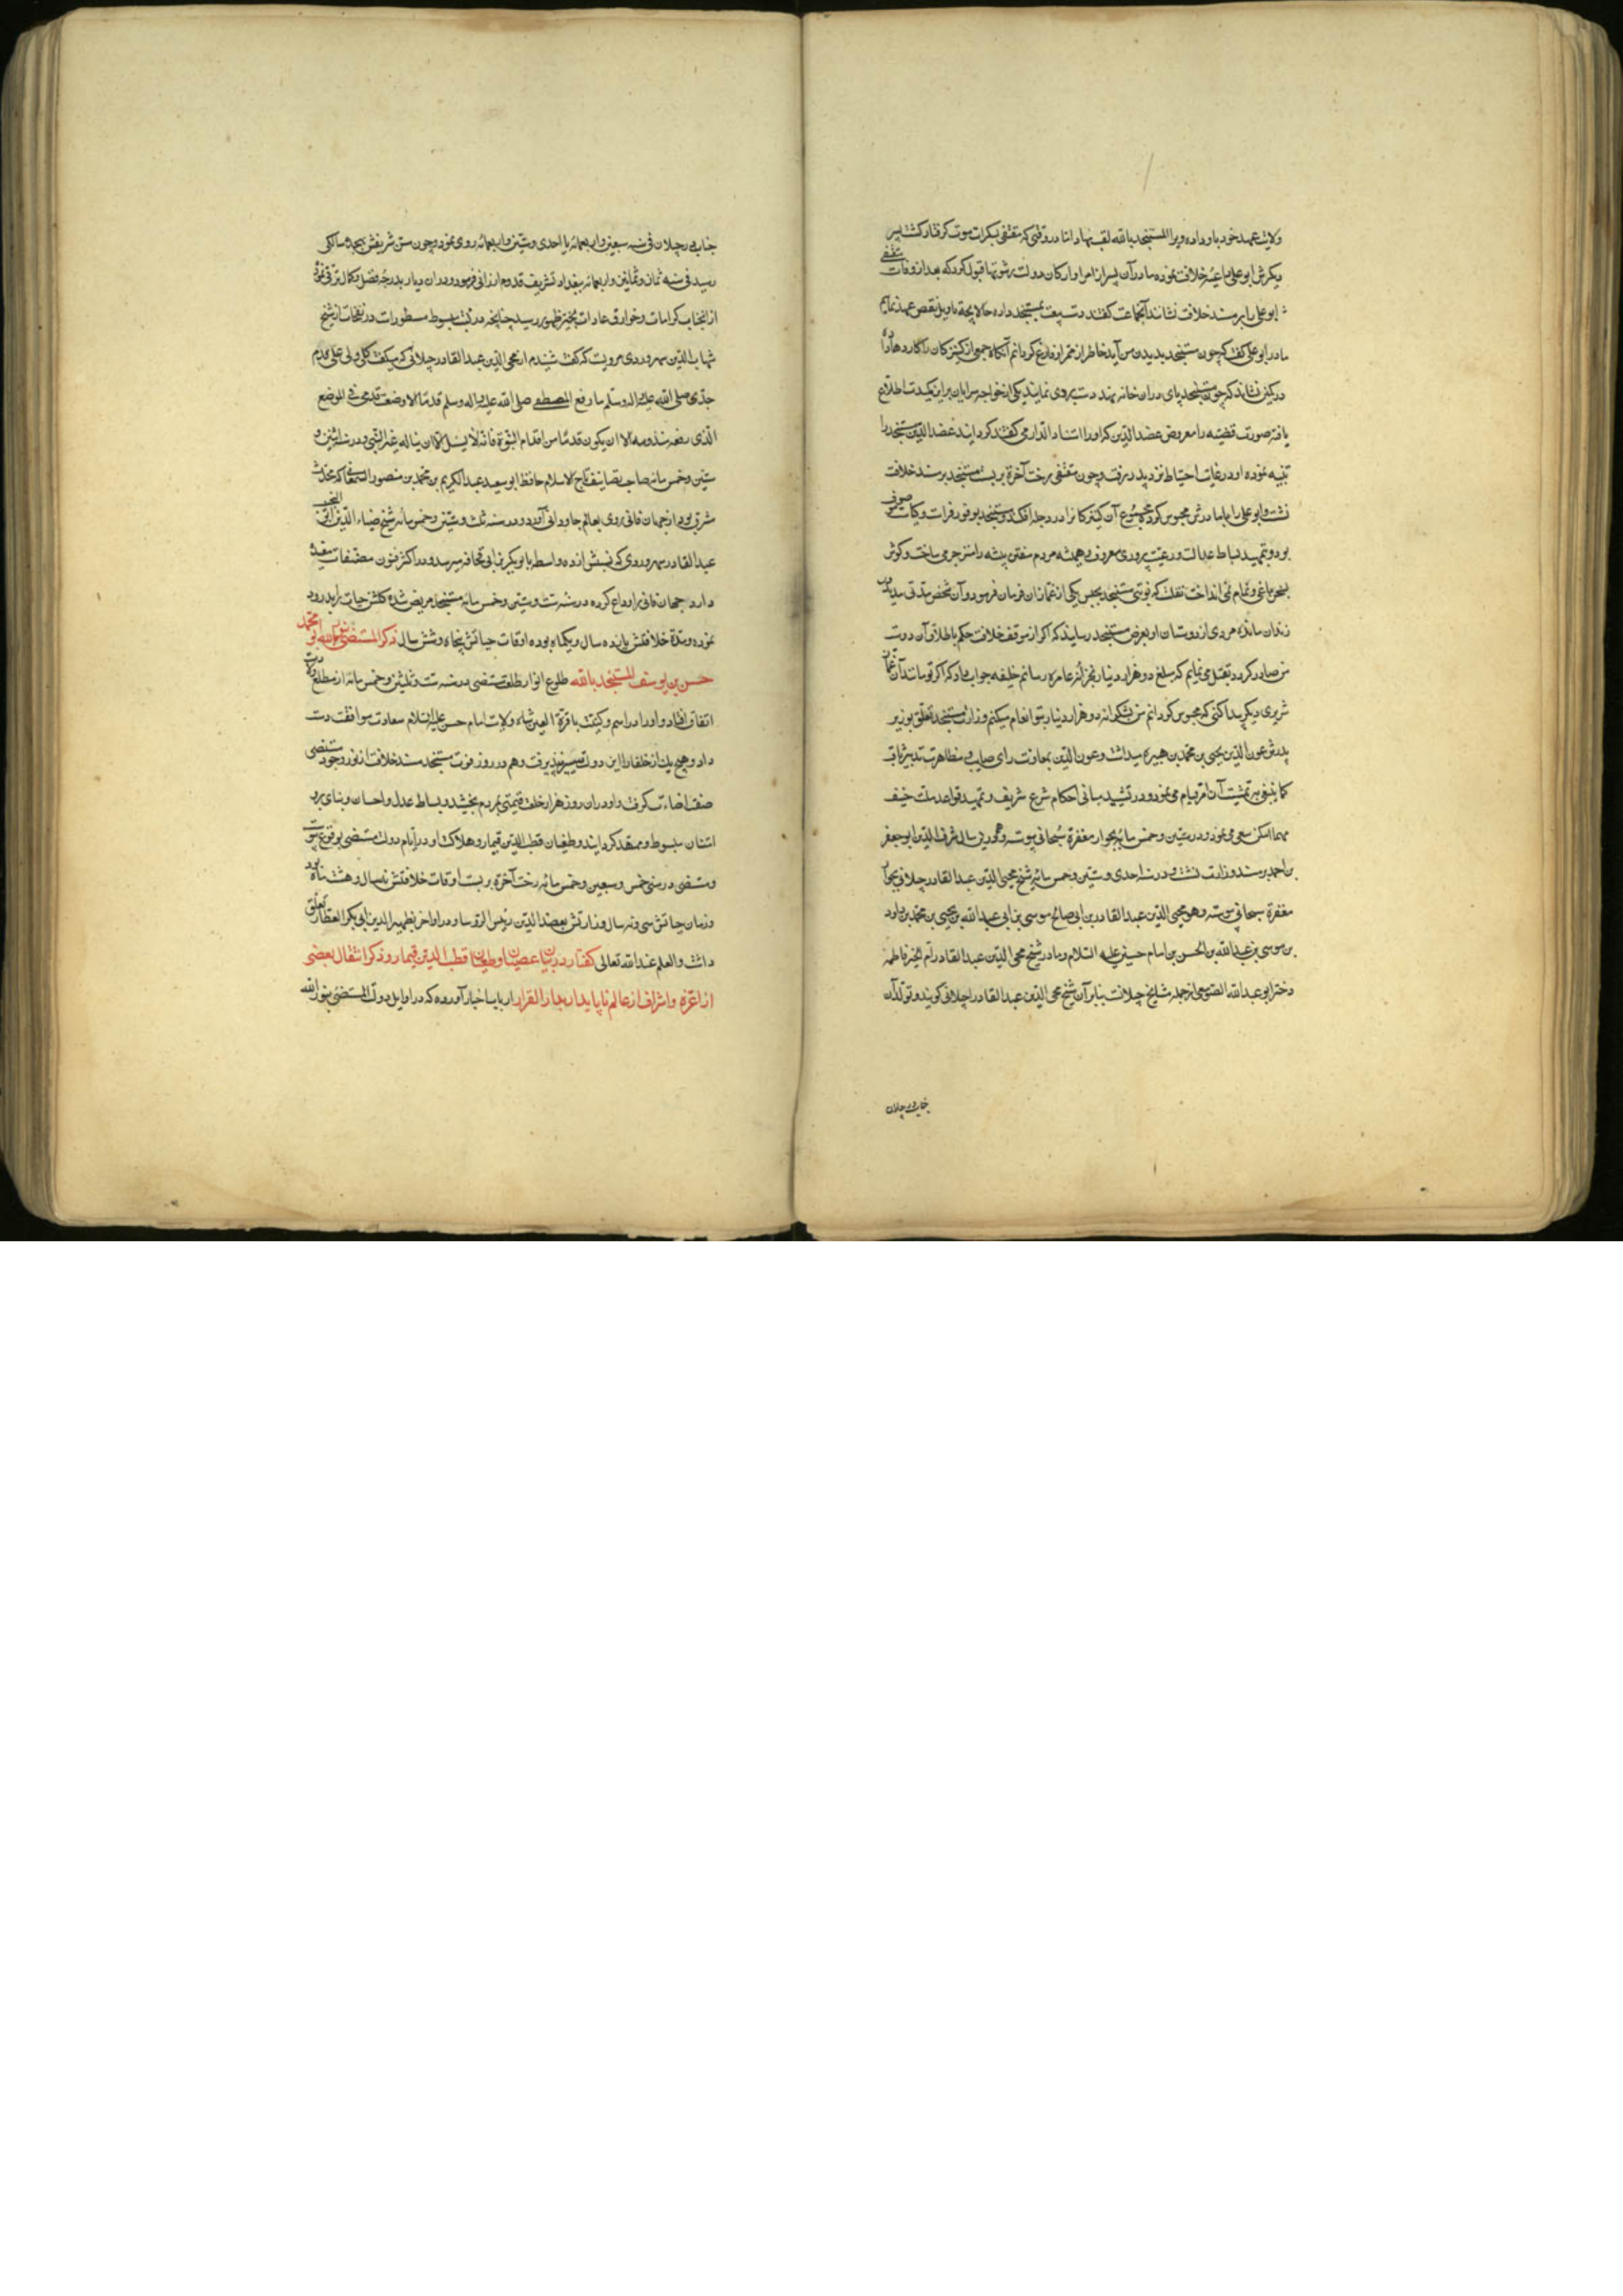 ولایت عهد خود باو داده ویرا المستنجد بالله لقب نهاد اما در وقتی که مقتفی بسکرات موت گرفتار گشت پسر
دیگرش ابو علی داعیه خلافت نموده مادر آن پسر از امرا و ارکان دولت رشوتها قبول کرد که بعد از وفات مقتفی
ابو علی را بر مسند خلافت نشانند آنجماعت گفتند دست بیعت بمستنجد داده حالا بچه تاویل نقض عهد نمائیم
مادر ابو علی گفت که چون مستنجد بدیدن من آید خاطر از ممر او فارغ گردانم آنگاه جمعی از کنیزکان را کاردها داده
در کمین نشاند که چون مستنجد پای در آن خانه نهد دست بروی نمایند یکی از خواجه سرایان برین کیدت اطلاع
یافته صورت قضیه را معروض عضد الدین که او را استاد الدار می گفتند گردانید عضد الدین مستنجد را
تنبیه نموده او در غایت احتیاط نزد پدر رفت و چون مقتفی رخت آخرة بر بست مستنجد بر مسند خلافت
نشست و ابو علی را با مادرش محبوس کرده مجموع آن کنیزکانرا در دجله افکند و مستنجد بوفور فراست و کیاست موصوف
بود و بتمهید بساط عدالت و رعیت پروری معروف همیشه مردم مفتن پیشه را منزجر می ساخت و گوش
بسخن باغی و نمام نمی انداخت نقلست که نوبتی مستنجد بحبس یکی از غمازان فرمان فرمود و آن شخص مدتی مدید در
زندان مانده مردی از دوستان او بعرض مستنجد رسانید که اگر از موقف خلافت حکم باطلاق آن دوست
من صادر گردد تقبل می نمایم که مبلغ دو هزار دینار بخزانه عامره رسانم خلیفه جواب داد که اگر تو مانند آن غماز
شریری دیگر پیدا کنی که محبوس گردانم من بشکرانه دو هزار دینار بتو انعام میکنم وزارت مستنجد تعلق بوزیر
پدرش عون الدین یحیی بن محمد بن هبیره میداشت و عون الدین بمعاونت رای صایب و مظاهرت تدبیر ثاقب
کما ینبغی بر تمشیت آن امر قیام می نمود و در تشیید مبانی احکام شرع شریف و تمهید قواعد ملت حنیف
مهما امکن سعی می نمود و در ستین و خمس مائه بجوار مغفرة سبحانی پیوسته و هم درین سال شرف الدین ابو جعفر
بن احمد بر مسند وزارت نشست و در سنه احدی و ستین و خمس مائه شیخ محیی الدین عبد القادر جیلانی بجوار
مغفرة سبحانی پیوسته و هو محیی الدین عبد القادر بن ابی صالح موسی بن ابی عبد الله بن یحیی بن محمد بن داود
بن موسی بن عبد الله بن الحسن بن امام حسن علیه السلام و مادر شیخ محی الدین عبد القادر ام الخیر فاطمه
دختر ابو عبد الله الصومعی از جمله مشایخ جیلانست بنابر آن شیخ محی الدین عبد القادر را جیلانی گویند و تولد آن
جناب در جیلان
جناب در جیلان فی سنه سبعین و اربعمائه یا احدی و ستین و اربعمائه روی نمود و چون سن شریفش بهجده سالگی
رسید فی سنه ثمان و ثمانین و اربعمائه ببغداد تشریف قدوم ارزانی فرمود و در آن دیار بدرجه فضل و کمال ترقی نموده
از آنجناب کرامات و خوارق عادات بحیز ظهور رسید چنانچه در کتب مبسوط مسطورات در نفحات از شیخ
شهاب الدین سهروردی مرویست که گفت شنیدم از محی الدین عبد القادر جیلانی که میگفت کل ولی علی قدم
جدی صلی الله علیه واله وسلم ما رفع المصطفی صلی الله علیه واله وسلم قدما الا وضعت قدمی فی الموضع
الذی رفعه منه قدمه الا ان یکون قدما من اقدام النبوة فانه لا سبیل الی ان یناله غیر النبی و در سنه اثنین و
ستین و خمس مائه صاحب تصانیف تاج الاسلام حافظ ابو سعید عبد الکریم بن محمد بن منصور السمعانی که محدث
شرق بود از جهان فانی روی بعالم جاودانی آورد و در سنه ثلث و ستین و خمس مائه شیخ ضیاء الدین ابو النجیب
عبد القادر سهروردی که نسبش از ده واسطه بابو بکر بن ابی قحافه میرسد و در اکثر فنون مصنفات مفیده
دارد جهان فانی را وداع کرده در سنه ست و ستین و خمس مائه مستنجد مریض شده گلشن حیات را بدرود
نموده و مدة خلافتش یازده سال و یکماه بوده اوقات حیاتش پنجاه و شش سال ذکر المستضی بنور الله ابو محمد
حسن بن یوسف المستنجد بالله طلوع انوار طلعت مستضی در سنه ست و ثلثین و خمس مائه از مطلع ولادت
اتفاق افتاد و او را در اسم و کنیت با قرة العین شاه ولایت امام حسن علیه السلام سعادت موافقت دست
داد و هیچ یک از خلفا را این دولت میسر نپذیرفت و هم در روز فوت مستنجد مسند خلافت از نور وجود مستضی
صفت اضاءت گرفت و او در آن روز هزار خلعت قیمتی بمردم بخشید و بساط عدل و احسان و بنای بر و
امتنان مبسوط و ممهد گردانید و طغیان قطب الدین قیماز و هلاکت او در ایام دولت مستضی بوقوع پیوست
و مستضی در سنه خمس و سبعین و خمس مائه رخت آخرة بر بست اوقات خلافتش نه سال و هشت ماه بود
و زمان حیاتش سی و نه سال وزارتش بعضد الدین رئیس الروسا و در اواخر بظهیر الدین ابی بکر العطار تعلق
داشت والعلم عند الله تعالی گفتار در بیان عصیان و طغیان قطب الدین قیماز و ذکر انتقال بعضی
از اعزه و اشراف از عالم ناپایدار بدار القرار ارباب اخبار آورده که در اوایل دولت المستضی بنور الله